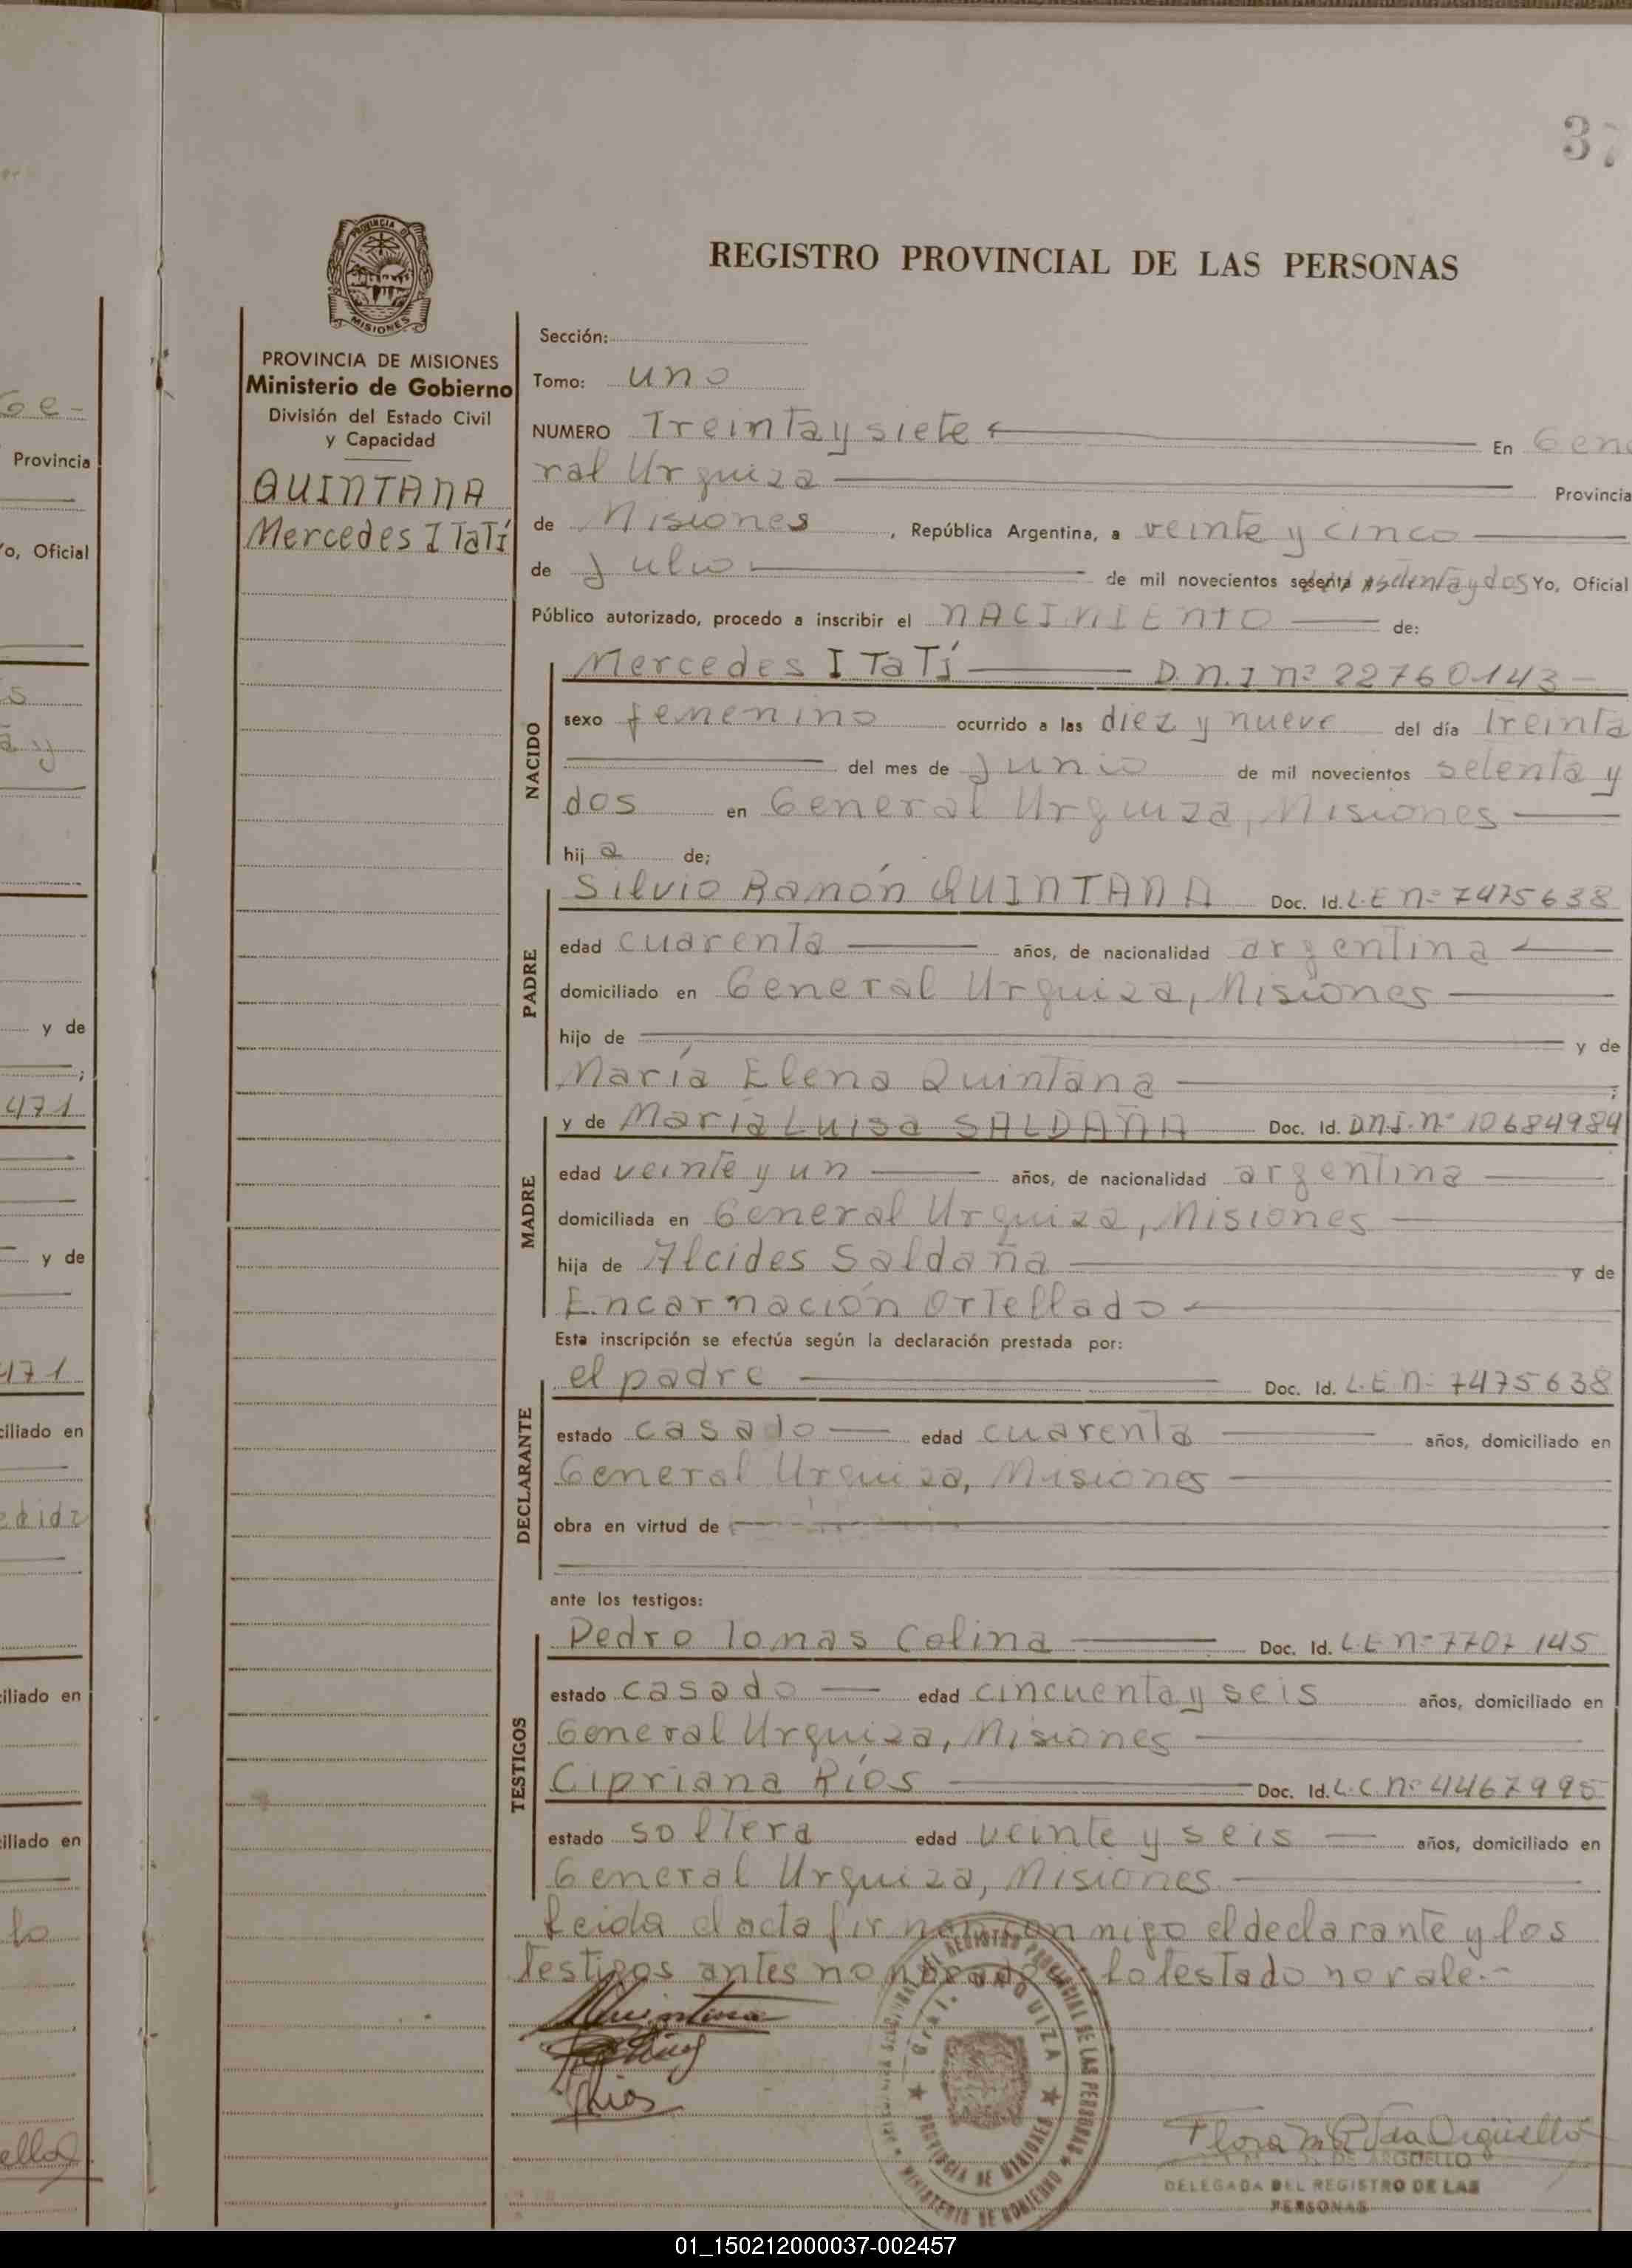 37
REGISTRO PROVINCIAL DE LAS PERSONAS
PROVINCIA DE MISIONES
Ministerio de Gobierno
División del Estado Civil
y Capacidad
QUINTANA
Mercedes ITaTí
Sección:
Tomo: uno
NUMERO Treinta y siete En Gene
ral Urquiza Provincia
de Misiones, República Argentina, a veinte y cinco
de Julio de mil novecientos sesenta y setenta y dos Yo, Oficial
Público autorizado, procedo a inscribir el NACIMIENTO de:
NACIDO
Mercedes ITaTí D.N.I nº 22760143
sexo femenino ocurrido a las diez y nueve del día Treinta
del mes de Junio de mil novecientos setenta y
dos en General Urquiza, Misiones
hija de;
PADRE
Silvio Ramón QUINTANA Doc. Id. L.E nº 7475638
edad cuarenta años, de nacionalidad argentina
domiciliado en General Urquiza, Misiones
hijo de y de
María Elena Quintana ;
MADRE
y de María Luisa SALDAÑA Doc. Id. D.N.I. nº 10684984
edad veinte y un años, de nacionalidad argentina
domiciliada en General Urquiza, Misiones
hija de Alcides Saldaña y de
Encarnación Ortellado
Esta inscripción se efectúa según la declaración prestada por:
DECLARANTE
el padre Doc. Id. L.E nº 7475638
estado casado edad cuarenta años, domiciliado en
General Urquiza, Misiones
obra en virtud de
ante los testigos:
TESTIGOS
Pedro Tomas Colina Doc. Id. L.E nº 7707145
estado casado edad cincuenta y seis años, domiciliado en
General Urquiza, Misiones
Cipriana Ríos Doc. Id. L.C nº 4467995
estado soltera edad veinte y seis años, domiciliado en
General Urquiza, Misiones
Leida el acta firman conmigo el declarante y los
testigos antes nombrados: lo testado no vale.-
Quintana
Ríos
REGISTRO PROVINCIAL DE LAS PERSONAS
Gral. URQUIZA
PROVINCIA DE MISIONES
MINISTERIO DE GOBIERNO
Flora M. Vda Argüello
DE ARGÜELLO
DELEGADA DEL REGISTRO DE LAS
PERSONAS
01_150212000037-002457